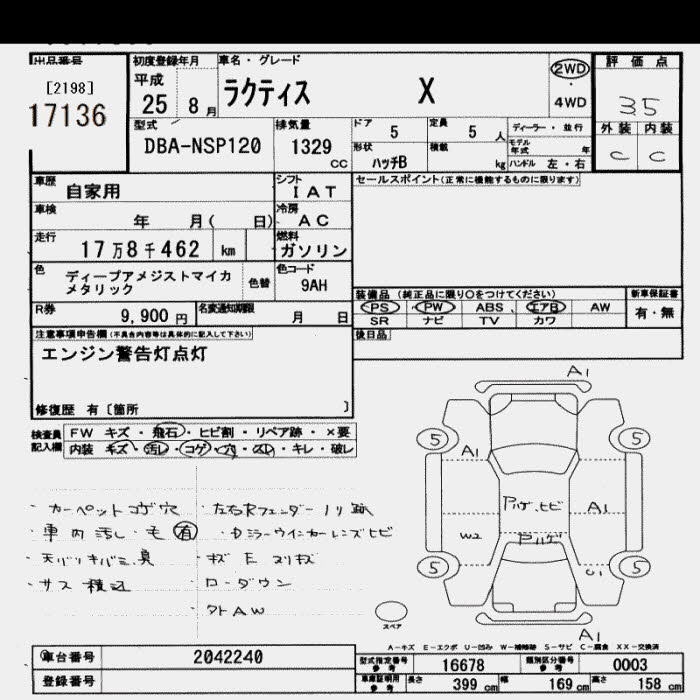 出品番号
[2198]
17136
初度登録年月
平成
25 8 月
車名・グレード
ラクティス X
2WD
・
4WD
評価点
3.5
外装 内装
C C
型式
DBA-NSP120
排気量
1329
CC
ドア
5
定員
5 人
形状
ハッチB
積載
kg
ディーラー・並行
モデル
年式 年
ハンドル 左・右
車歴
自家用
シフト
IAT
車検
年 月( 日)
冷房
AC
走行
17万8千462 km
燃料
ガソリン
色
ディープアメジストマイカ
メタリック
色替
色コード
9AH
R券
9,900 円
名変通知期限
月 日
セールスポイント(正常に機能するものに限ります)
装備品 (純正品に限り○をつけてください)
PS PW ABS エアB AW
SR ナビ TV カワ
新車保証書
有・無
後日品
注意事項申告欄(不具合内容等は具体的に記入して下さい)
エンジン警告灯点灯
修復歴 有〔箇所 〕
検査員
記入欄
FW キズ・飛石・ヒビ割・リペア跡・×要
内装 キズ・汚レ・コゲ・穴・スレ・キレ・破レ
・カーペットコゲ穴
・車内汚し・毛有
・サス積込
・左右Rフェンダー
・ドミラーウインカーレンズヒビ
・ローダウン
・クトAW
A1
5
5
A1
A1
W2
C1
5
5
A1
スペア
A-キズ E-エクボ U-凹み W-補修跡 S-サビ C-腐食 XX-交換済
車台番号
2042240
登録番号
型式指定番号
参考
16678
類別区分番号
参考
0003
車庫証明用
参考
長さ
399 cm
幅
169 cm
高さ
158 cm